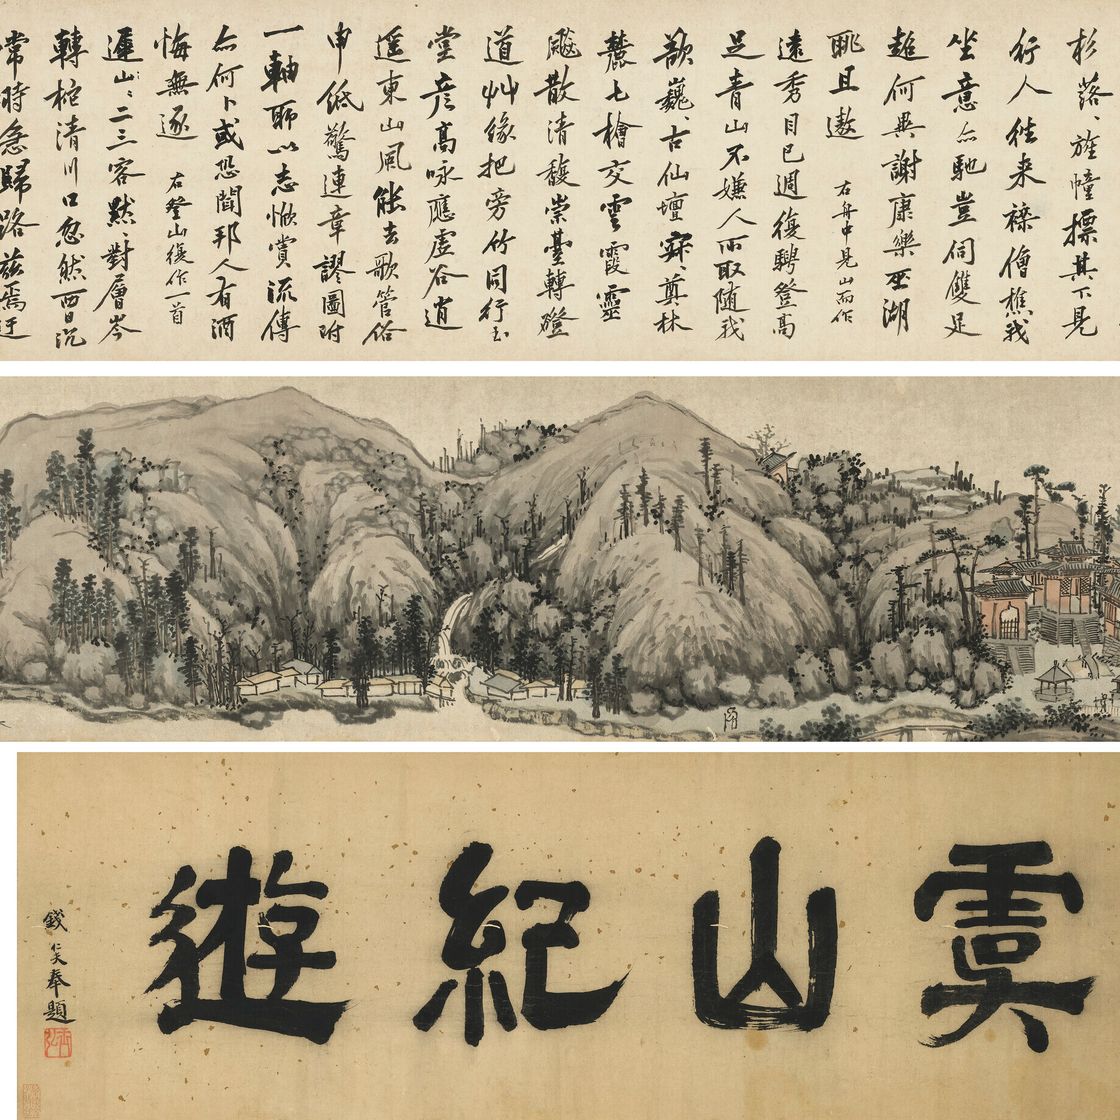 杉落、旌幢摽其下見
行人往来襍僧樵我
坐意亦馳豈伺雙足
趍何異謝康樂巫湖
眺且遨
右舟中見山而作
遠秀目已週復騁登高
足青山不嫌人所取随我
歆巍、古仙壇寀、煎林
麓七檜交雲霞靈
飚散清馥崇臺轉磴
道艸緣把旁竹同行玉
堂彦高咏應虚谷逍
遥東山風能去歌管俗
申紙驚連章謬圖附
一軸聊以志慚賞流傳
亦何卜或恐聞邦人有酒
悔無逐
右登山復作一首
連山、二三客黙、對層岑
轉柁清川口忽然西日沉
常時急歸路茲焉迂
虞山紀遊
錢仁夫奉題